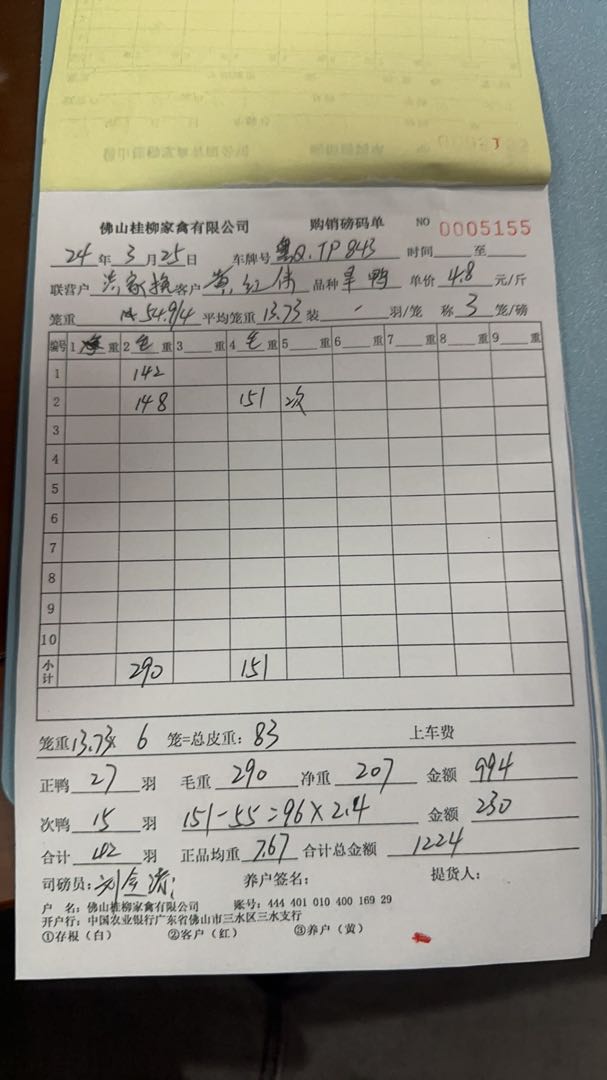 佛山桂柳家禽有限公司 购销磅码单 NO 0005155
24 年 3 月 25 日 车牌号 粤Q.TP843 时间 至
联营户 客户 黄红伟 品种 旱鸭 单价 4.8 元/斤
笼重 54.9/4 平均笼重 13.73 装 - 羽/笼 称 3 笼/磅
编号 1 重 2 毛 重 3 重 4 毛 重 5 重 6 重 7 重 8 重 9 重
1 142
2 148 151 次
3
4
5
6
7
8
9
10
小计 290 151
笼重 13.73 x 6 笼=总皮重: 83 上车费
正鸭 27 羽 毛重 290 净重 207 金额 994
次鸭 15 羽 151-55=96×2.4 金额 230
合计 42 羽 正品均重 7.67 合计总金额 1224
司磅员: 养户签名: 提货人:
户 名: 佛山桂柳家禽有限公司 账号: 444 401 010 400 169 29
开户行: 中国农业银行广东省佛山市三水区三水支行
①存根（白） ②客户（红） ③养户（黄）